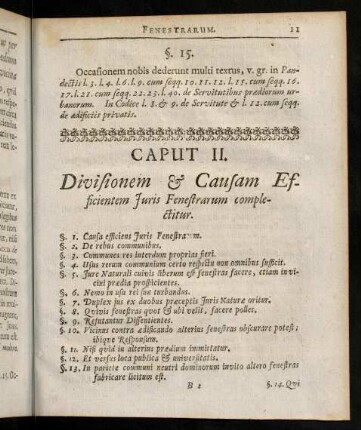 FENESTRARUM. 11
§. 15.
Occasionem nobis dederunt multi textus, v. gr. in Pan-
dectis l. 3. l. 4. l. 6. l. 9. cum seqq. 10. 11. 12. l. 15. cum seqq. 16.
17. l. 21. cum seqq. 22. 23. l. 40. de Servitutibus prædiorum ur-
banorum. In Codice l. 8. & 9. de Servitute & l. 12. cum seqq.
de ædificiis privatis.
CAPUT II.
Divisionem & Causam Ef-
ficientem Juris Fenestrarum comple-
ctitur.
§. 1. Causa efficiens Juris Fenestrarum.
§. 2. De rebus communibus.
§. 3. Communes res interdum proprias fieri.
§. 4. Usus rerum communium certo respectu non omnibus sufficit.
§. 5. Jure Naturali cuivis liberum est fenestras facere, etiam in vi-
cini prædia prospicientes.
§. 6. Nemo in usu rei suæ turbandus.
§. 7. Duplex jus ex duobus præceptis Juris Naturæ oritur.
§. 8. Quivis fenestras quot & ubi velit, facere potest.
§. 9. Refutantur Dissentientes.
§. 10. Vicinus contra ædificando alterius fenestras obscurare potest;
ibique Responsum.
§. 11. Nisi quid in alterius prædium immittatur.
§. 12. Et versus loca publica & universitatis.
§. 13. In pariete communi neutri dominorum invito altero fenestras
fabricare licitum est.
B 2 §. 14. Qui